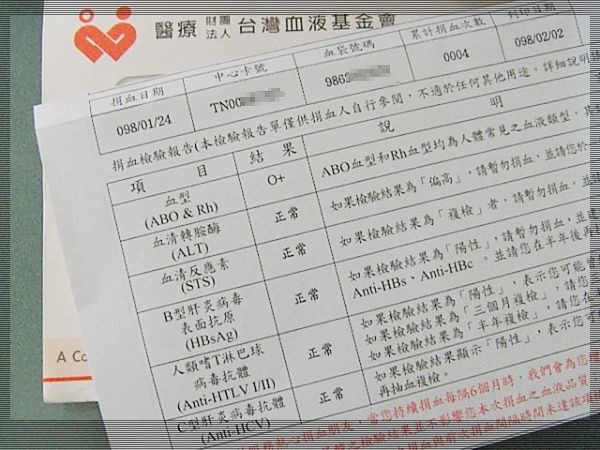 醫療 財團法人 台灣血液基金會
捐血日期 中心卡號 血袋號碼 累計捐血次數 列印日期
098/01/24 TN00 986 0004 098/02/02
捐血檢驗報告(本檢驗報告單僅供捐血人自行參閱,不適於任何其他用途。詳細說明請
項 目 結 果 說 明
血型
(ABO & Rh)
O+
ABO血型和Rh血型均為人體常見之血液類型,其
血清轉胺酶
(ALT)
正常
如果檢驗結果為「偏高」,請暫勿捐血,並請您於
血清反應素
(STS)
正常
如果檢驗結果為「複檢」者,請暫勿捐血,並
B型肝炎病毒
表面抗原
(HBsAg)
正常
如果檢驗結果為「陽性」,請暫勿捐血,並建
Anti-HBs、Anti-HBc 。並請您在半年後再
人類嗜T淋巴球
病毒抗體
(Anti-HTLV I/II)
正常
如果檢驗結果為「陽性」,表示您可能曾
如果檢驗結果為「三個月複檢」,請您
如果檢驗結果為「半年複檢」,請您在
C型肝炎病毒抗體
(Anti-HCV)
正常
如果檢驗結果顯示「陽性」,表示您可
再抽血複檢。
熱心捐血朋友,當您持續捐血每隔6個月時,我們會為您
之檢驗結果並不影響您本次捐血之血液品質
捐血與前次捐血間隔時間未達該項檢
A Co